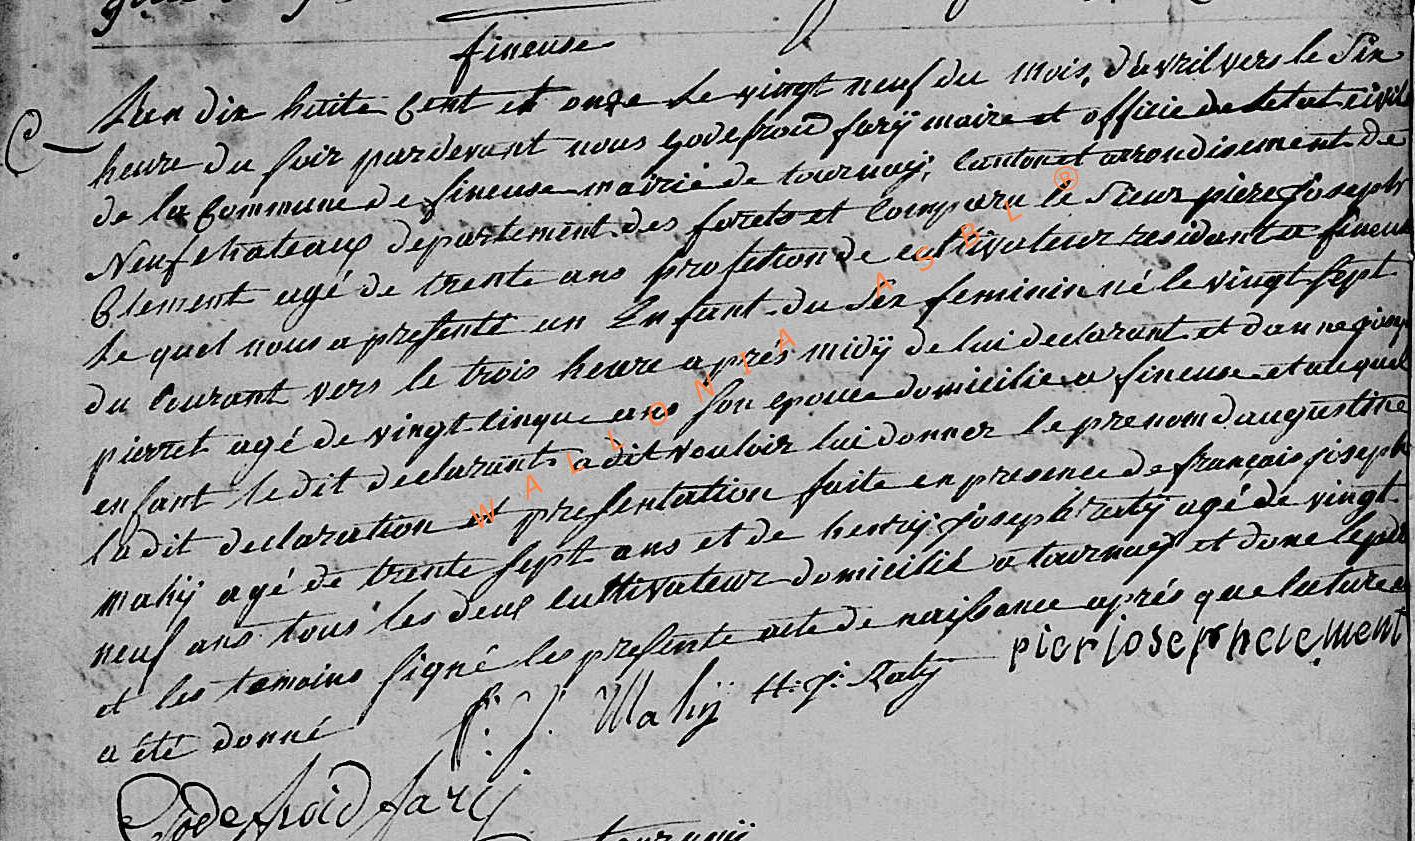 fineuse
Lan dix huite Cent et onze Le vingt neuf du mois d'avril vers le Six
heure du soir pardevant nous godefroid farÿ maire et officie de letat civil
de la Commune de fineuse mairie de tournaÿ, Canton et arrondisement de
Neufchateaux departement des forets et Comparu le Sieur piere Joseph
Clement agé de trente ans profetion de cultivateur residant a fineuse
Le quel nous a presenté un Enfant du Sex feminin né le vingt sept
du Courant vers le trois heure aprés midÿ de lui declarant et danne
pierret agé de vingt Cinque ans son epouse domicilie a fineuse et auquel
enfant le dit declarant a dit vouloir lui donner le prenom d'augustine
ladit declaration et presentation faite en presence de françois joseph
mahÿ agé de trente sept ans et de henrÿ joseph ratÿ agé de vingt
neuf ans tous les deux cultivateur domicilié a tournaÿ et done le pere
et les temoins signé les presente acte de naissance aprés que lecture
a été donné
f: J: Mahÿ H: J: Ratÿ pierjosephclement
Godefroid farÿ
tournaÿ
WALLONIA ASBL ®